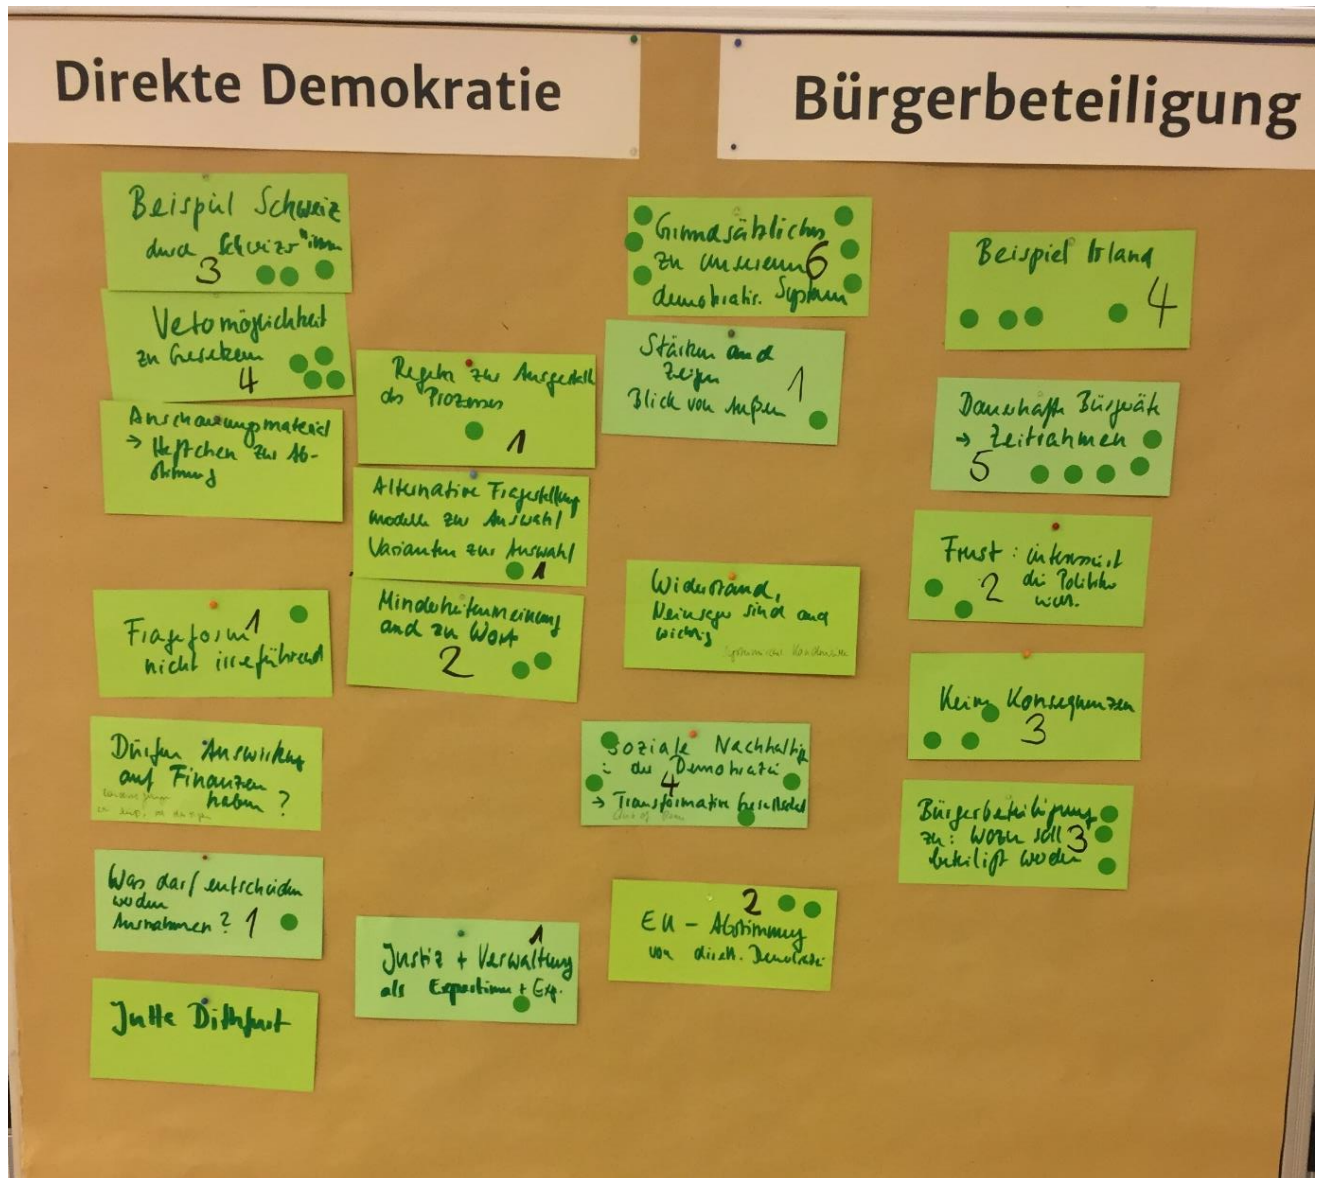 Direkte Demokratie
Bürgerbeteiligung
Beispiel Schweiz
durch Schweizer*innen
3
Vetomöglichkeit
zu Gesetzen
4
Anschauungsmaterial
→ Heftchen zur Ab-
stimmung
Frageform 1
nicht irreführend
Dürfen Auswirkung
auf Finanzen
haben ?
Was darf entschieden
werden
Ausnahmen ? 1
Jutta Ditfurt
Regeln zur Ausgestalt
des Prozesses
1
Alternative Fragestellung
modelle zur Auswahl
Varianten zur Auswahl
1
Minderheitenmeinung
auch zu Wort
2
1
Justiz + Verwaltung
als Expertinnen + Exp.
Grundsätzliches
zu unserem 6
demokratis. System
Stärken und
zeigen 1
Blick von Außen
Widerstand,
Neinsager sind auch
wichtig
Soziale Nachhaltig
: der Demokratie
4
→ Transformative Gesellschaft
2
EU - Abstimmung
von direkt. Demokratie
Beispiel Irland
4
Dauerhafte Bürgeräte
→ Zeitrahmen
5
Frust : interessiert
2 die Politiker
nicht.
Keine Konsequenzen
3
Bürgerbeteiligung
zu : wozu soll 3
beteiligt werden